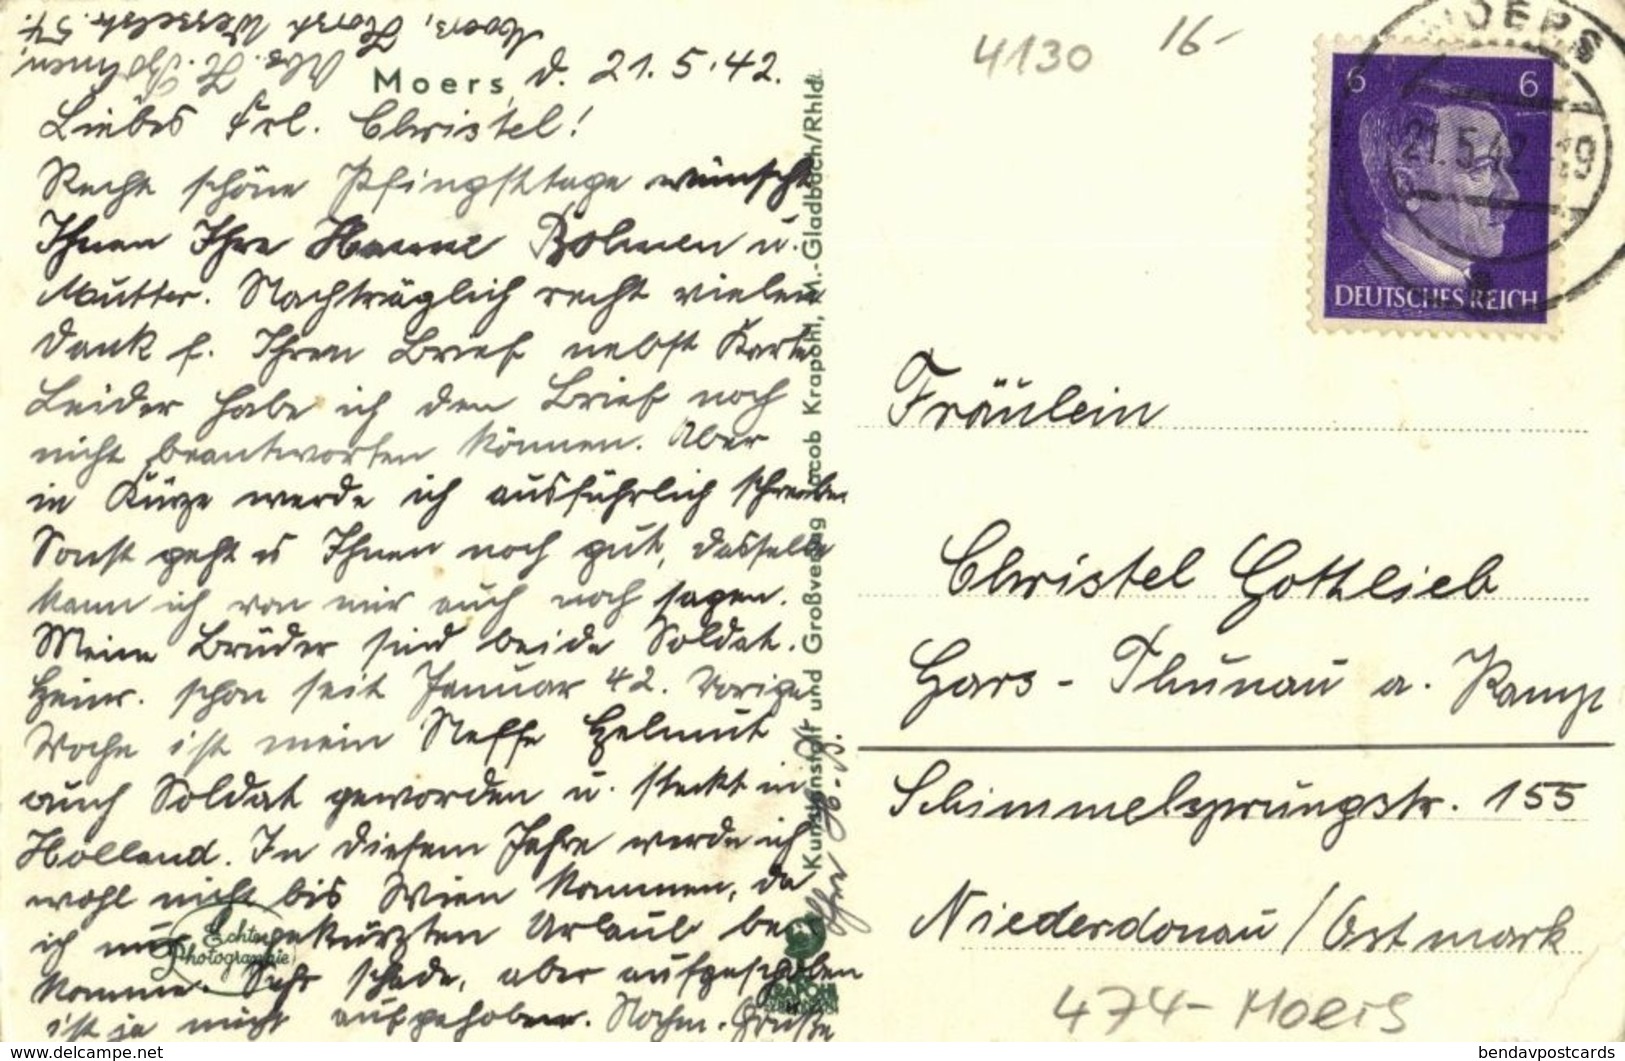 Moers, Horst Wesselstr. 54.
Abs. H.
Moers, d. 21.5.42.
Liebes Frl. Christel!
Recht schöne Pfingsttage wünscht
Ihnen Ihre u.
Mutter. Nachträglich recht vielen
Dank f. Ihren Brief nebst Karte
Leider habe ich den Brief noch
nicht beantworten können. Aber
in Kürze werde ich ausführlich schreiben
Sonst geht es Ihnen noch gut, dasselbe
kann ich von mir auch noch sagen.
Meine Brüder sind beide Soldat.
Heinr. schon seit Januar 42. Vorige
Woche ist mein Neffe Helmut
auch Soldat geworden u. steckt in
Holland. In diesem Jahre werde ich
wohl nicht bis Wien kommen, da
ich nur gekürzten Urlaub be-
komme. Sehr schade, aber aufgeschoben
ist ja nicht aufgehoben. Nochm. Grüße
Ihre
Echte
Photographie
Kunstanstalt und Großverlag Jacob Krapohl, M.-Gladbach/Rhld.
KRAPOHL
4130
16-
6 6
DEUTSCHES REICH
MOERS
21.5.42
Fräulein
Christel Gottlieb
Gars - Thunau a. Kamp
Schimmelsprungstr. 155
Niederdonau / Ostmark
474- Moers
www.delcampe.net
bendavpostcards